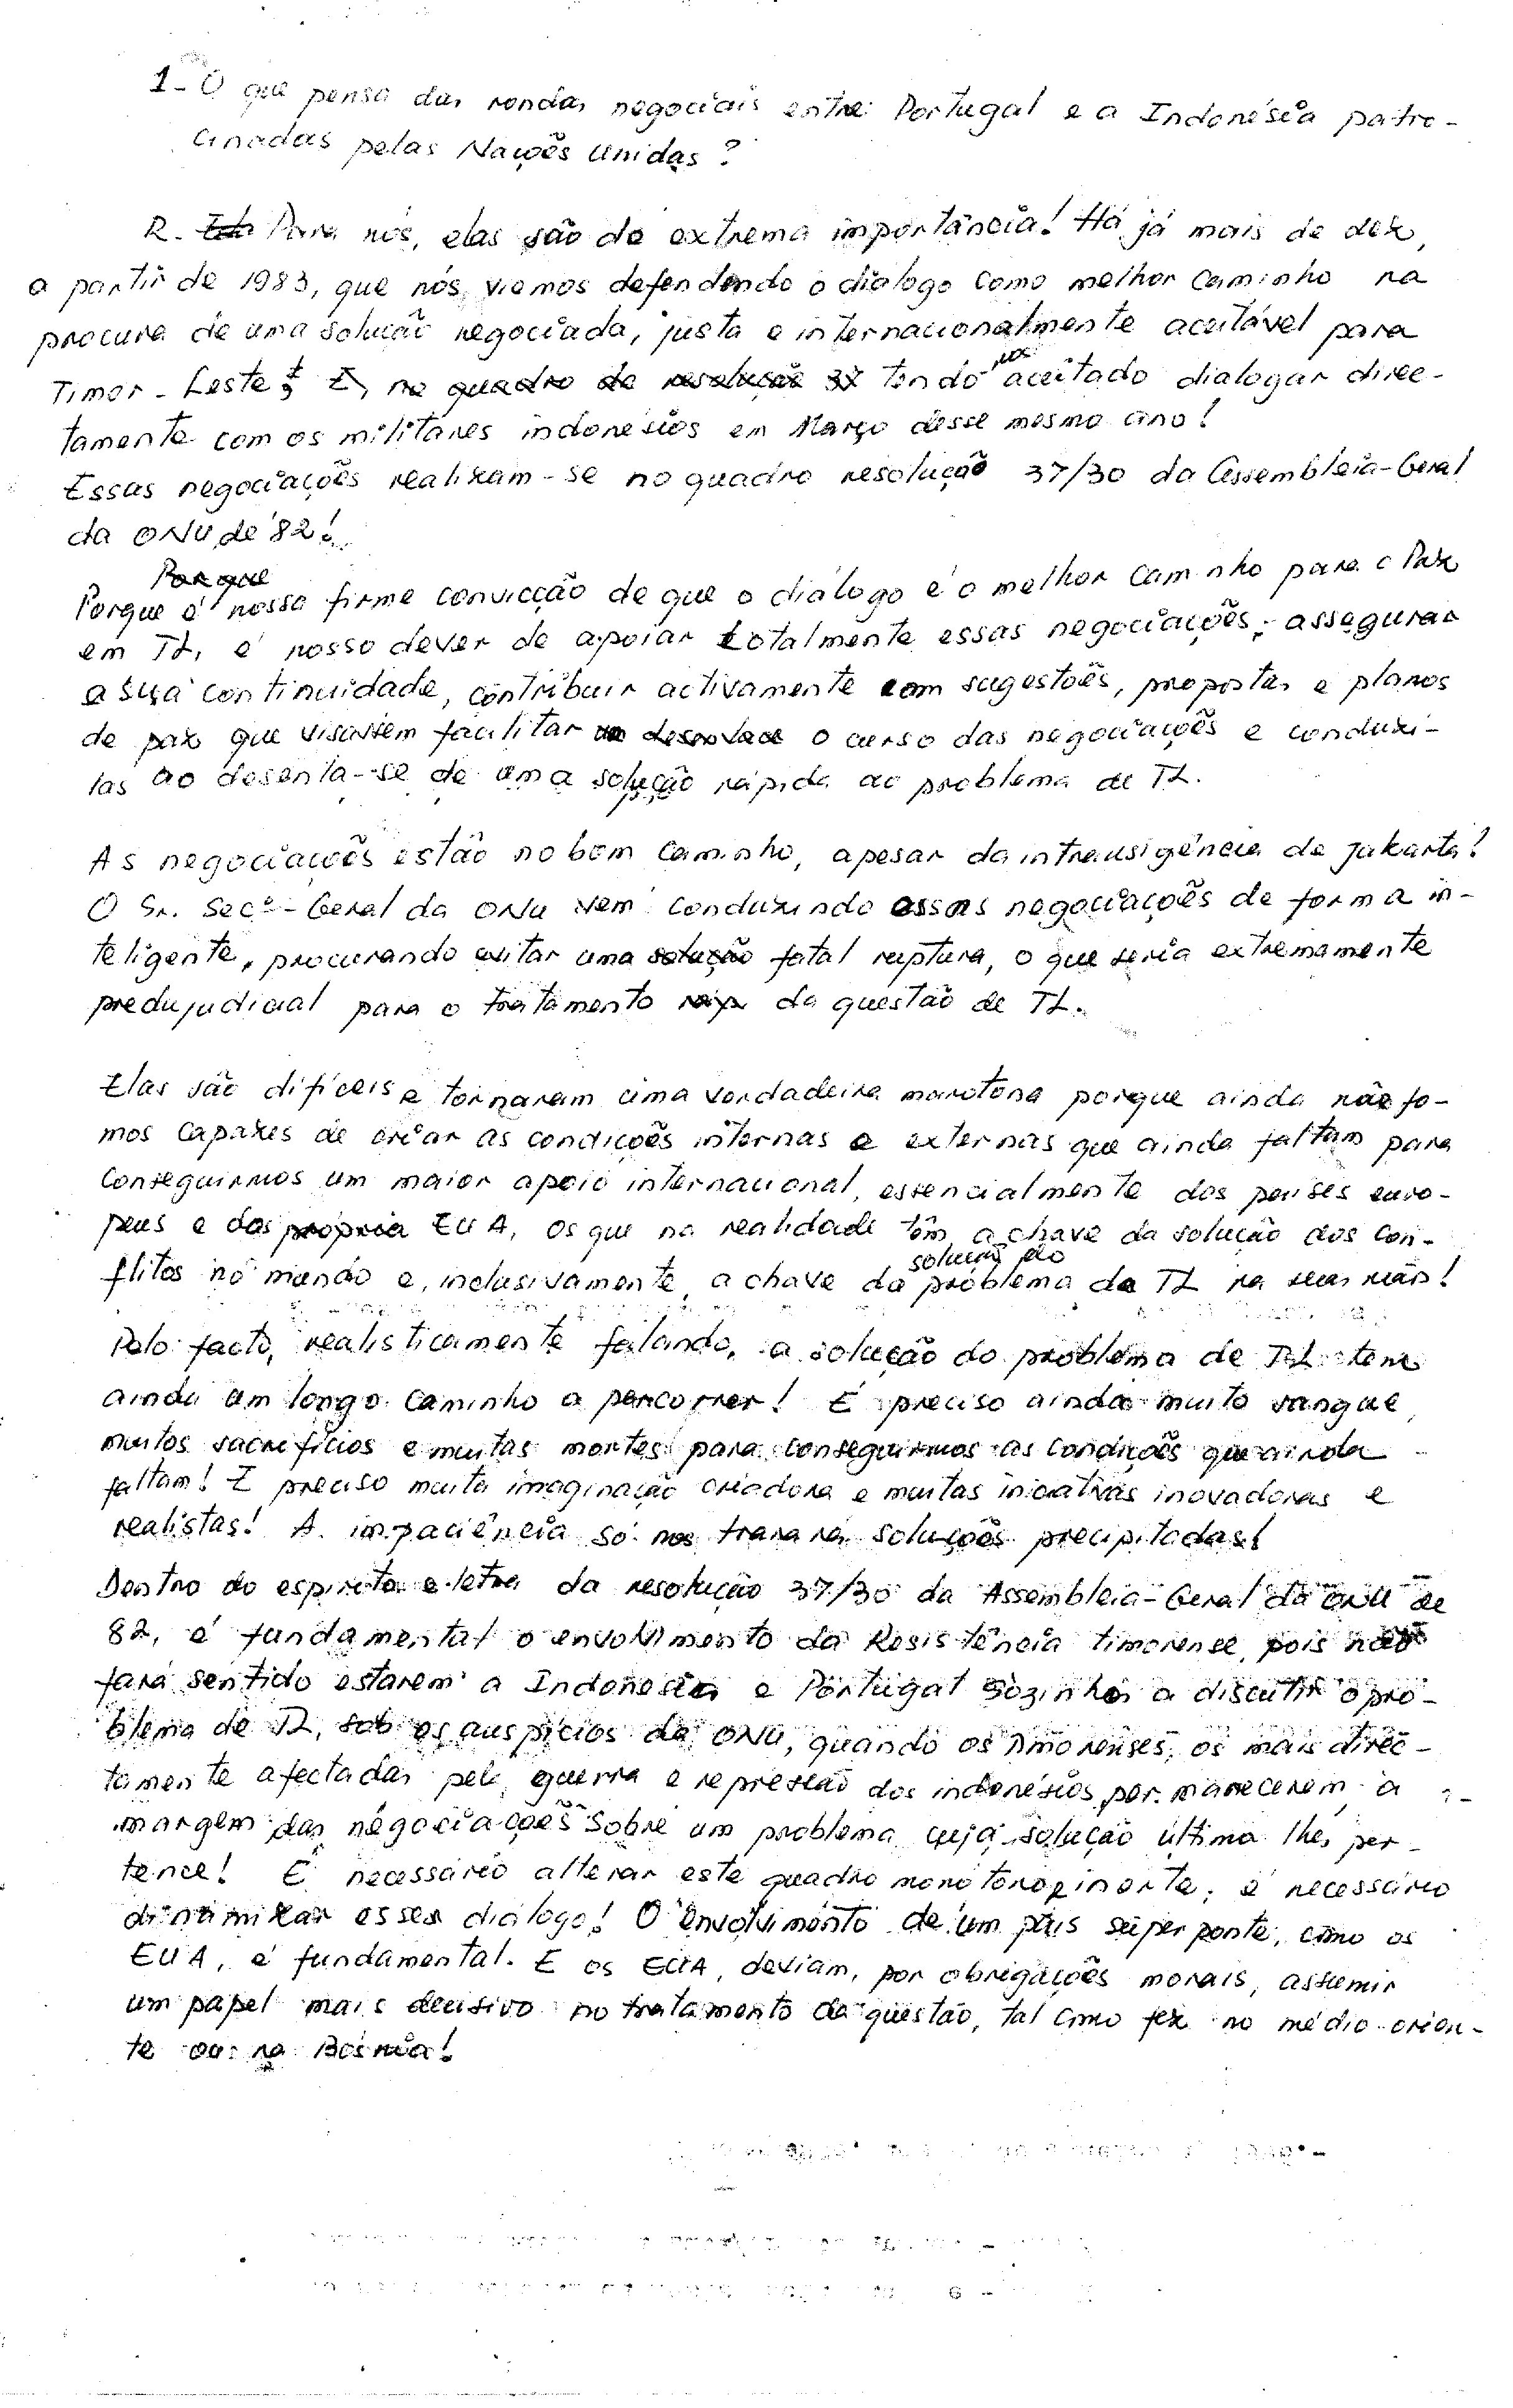 1- O que pensa das rondas negociais entre Portugal e a Indonésia patro-
cinadas pelas Nações Unidas?
R. Para nós, elas são de extrema importância! Há já mais de dez,
a partir de 1983, que nós viemos defendendo o diálogo como melhor caminho na
procura de uma solução negociada, justa e internacionalmente aceitável para
Timor-Leste, no quadro da resolução 37 tendo-nos aceitado dialogar direc-
tamente com os militares indonésios em Março desse mesmo ano!
Essas negociações realizam-se no quadro resolução 37/30 da Assembleia-Geral
da ONU de 82!
Porque
Porque é nossa firme convicção de que o diálogo é o melhor caminho para a Paz
em TL, é nosso dever de apoiar totalmente essas negociações, assegurar
a sua continuidade, contribuir activamente com sugestões, propostas e planos
de paz que visassem facilitar o curso das negociações e conduzi-
las ao desenla-se de uma solução rápida ao problema de TL.
As negociações estão no bom caminho, apesar da intransigência de Jakarta!
O Sr. Secº-Geral da ONU vem conduzindo essas negociações de forma in-
teligente, procurando evitar uma solução fatal ruptura, o que seria extremamente
predujudicial para o tratamento da questão de TL.
Elas são difíceis e tornaram uma verdadeira maratona porque ainda não fo-
mos capazes de criar as condições internas e externas que ainda faltam para
conseguirmos um maior apoio internacional, essencialmente dos países euro-
peus e dos própria EUA, os que na realidade têm a chave da solução dos con-
flitos no mundo e, inclusivamente, a chave da solução do problema de TL na suas mãos!
Pelo facto, realisticamente falando, a solução do problema de TL tem
ainda um longo caminho a percorrer! É preciso ainda muito sangue,
muitos sacrifícios e muitas mortes para conseguirmos as condições que ainda
faltam! É preciso muita imaginação criadora e muitas iniciativas inovadoras e
realistas! A impaciência só nos trará soluções precipitadas!
Dentro do espírito e letra da resolução 37/30 da Assembleia-Geral da ONU de
82, é fundamental o envolvimento da Resistência timorense, pois não
fará sentido estarem a Indonésia e Portugal sozinhos a discutir o pro-
blema de TL, sob os auspícios da ONU, quando os timorenses, os mais direc-
tamente afectadas pela guerra e repressão dos indonésios, permanecerem à
margem das negociações sobre um problema cuja solução última lhes per-
tence! É necessário alterar este quadro monótono e inerte; é necessário
dinamizar esses diálogo! O envolvimento de um país superponte, como os
EUA, é fundamental. E os EUA, deviam, por obrigações morais, assumir
um papel mais decisivo no tratamento da questão, tal como fez no médio-orien-
te ou na Bósnia!